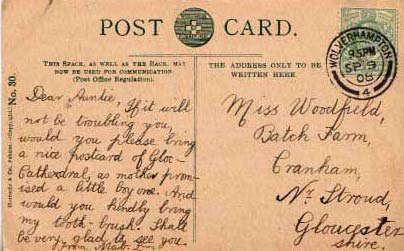 POST CARD.
THIS SPACE, AS WELL AS THE BACK, MAY
NOW BE USED FOR COMMUNICATION.
(Post Office Regulation).
THE ADDRESS ONLY TO BE
WRITTEN HERE
WOLVERHAMPTON
9.5PM
SP 9
08
4
No. 30.
Dear Auntie, If it will
not be troubling you,
would you please bring
a nice postcard of Glo-
Cathedral, as mother prom-
ised a little boy one. And
would you kindly bring
my tooth-brush. Shall
be very glad to see you.
from
Miss Woodfield,
Batch Farm,
Cranham,
Nr Stroud,
Gloucester
shire.